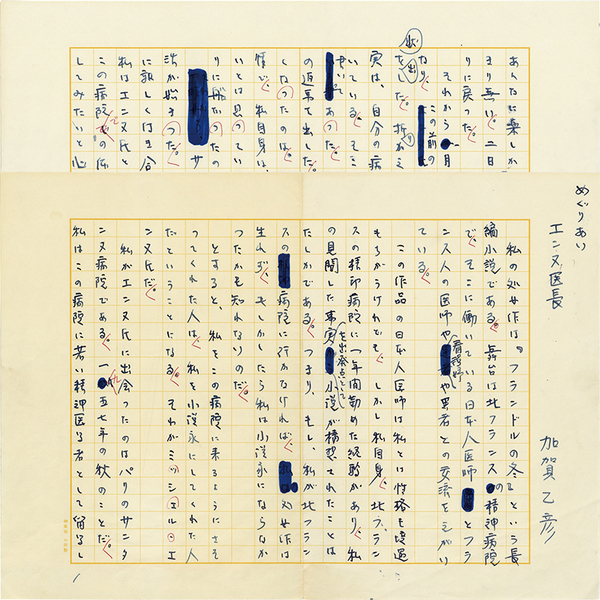 めぐりあい
エンヌ医長
加賀乙彦
私の処女作は『フランドルの冬』という長
編小説である。舞台は北フランスの精神病院
で、そこに働いている日本人医師とフラ
ンス人の医師や看護婦や患者との交流をえがい
ている。
この作品の日本人医師は私とは性格も境遇
もちがうけれども、しかし私自身、北フラン
スの精神病院に一年間勤めた経験があり、私
の見聞した事実を出発点として小説が構想されたことは
たしかである。つまり、もし、私が北フラン
スの病院に行かなければ、処女作は
生れず、もしかしたら私は小説家にならなか
ったかも知れないのだ。
とすると、私をこの病院に来るようにさそ
ってくれた人は、私を小説家にしてくれた人
だということになる。それがミッシェル・エ
ンヌ氏だ。
私がエンヌ氏に出会ったのはパリのサンタ
ンヌ病院である。一九五七年の秋のことだ。
私はこの病院に若い精神医学者として留学し
あんなに楽しか
まり無い。二日
りに戻った。
それから月
なり、この前の
状を出した。折かえ
実は、自分の病
いている。そこ
あった。
の返事を出した
くなったのは、
情で、私自身は
いとは思ってい
りに
サ
活が始まった。
に親しくつき合
私はエンヌ氏と
この病院での体
してみたいと心